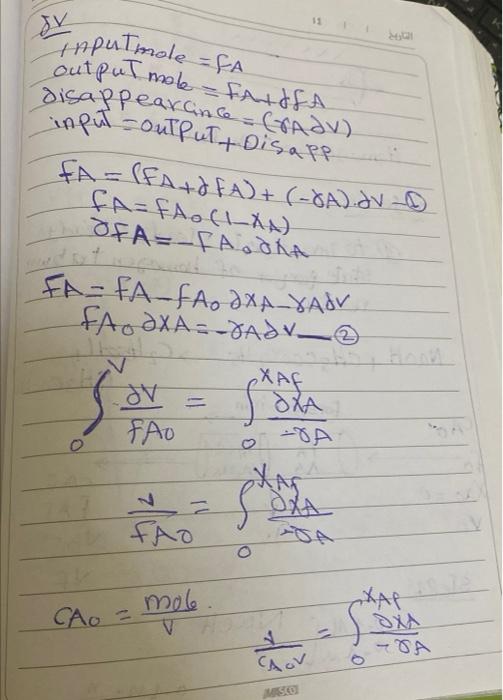 ∂V
inpuT mole = FA
outpuT mole = FA+∂FA
disappearance = (-rA∂V)
input = ouTPuT + Disapp
FA = (FA+∂FA) + (-rA).∂V —①
FA = FA0 (1-XA)
∂FA = -FA0 ∂XA
FA = FA - FA0 ∂XA - rA∂V
FA0 ∂XA = -rA∂V —②
∫₀^V ∂V/FA0 = ∫₀^XAf ∂XA/-rA
V/FA0 = ∫₀^XAf ∂XA/-rA
CA0 = mole/V.
V/CA0V = ∫₀^XAf ∂XA/-rA
MISCO